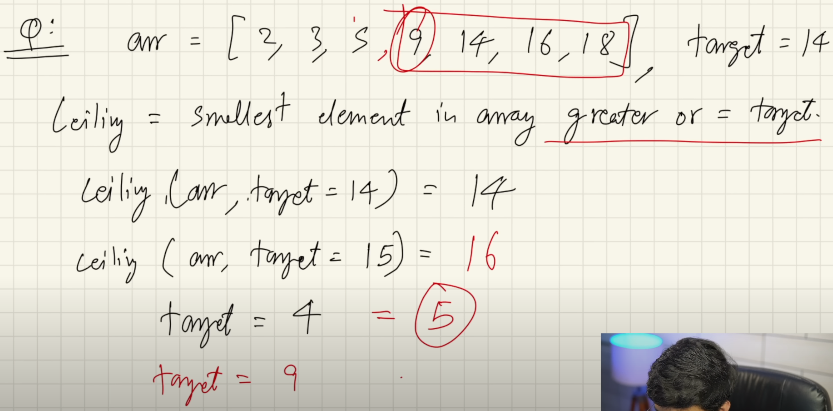 Q: arr = [2, 3, 5, 9, 14, 16, 18], target = 14
Ceiling = smallest element in array greater or = target.
Ceiling (arr, target = 14) = 14
ceiling (arr, target = 15) = 16
target = 4 = 5
target = 9